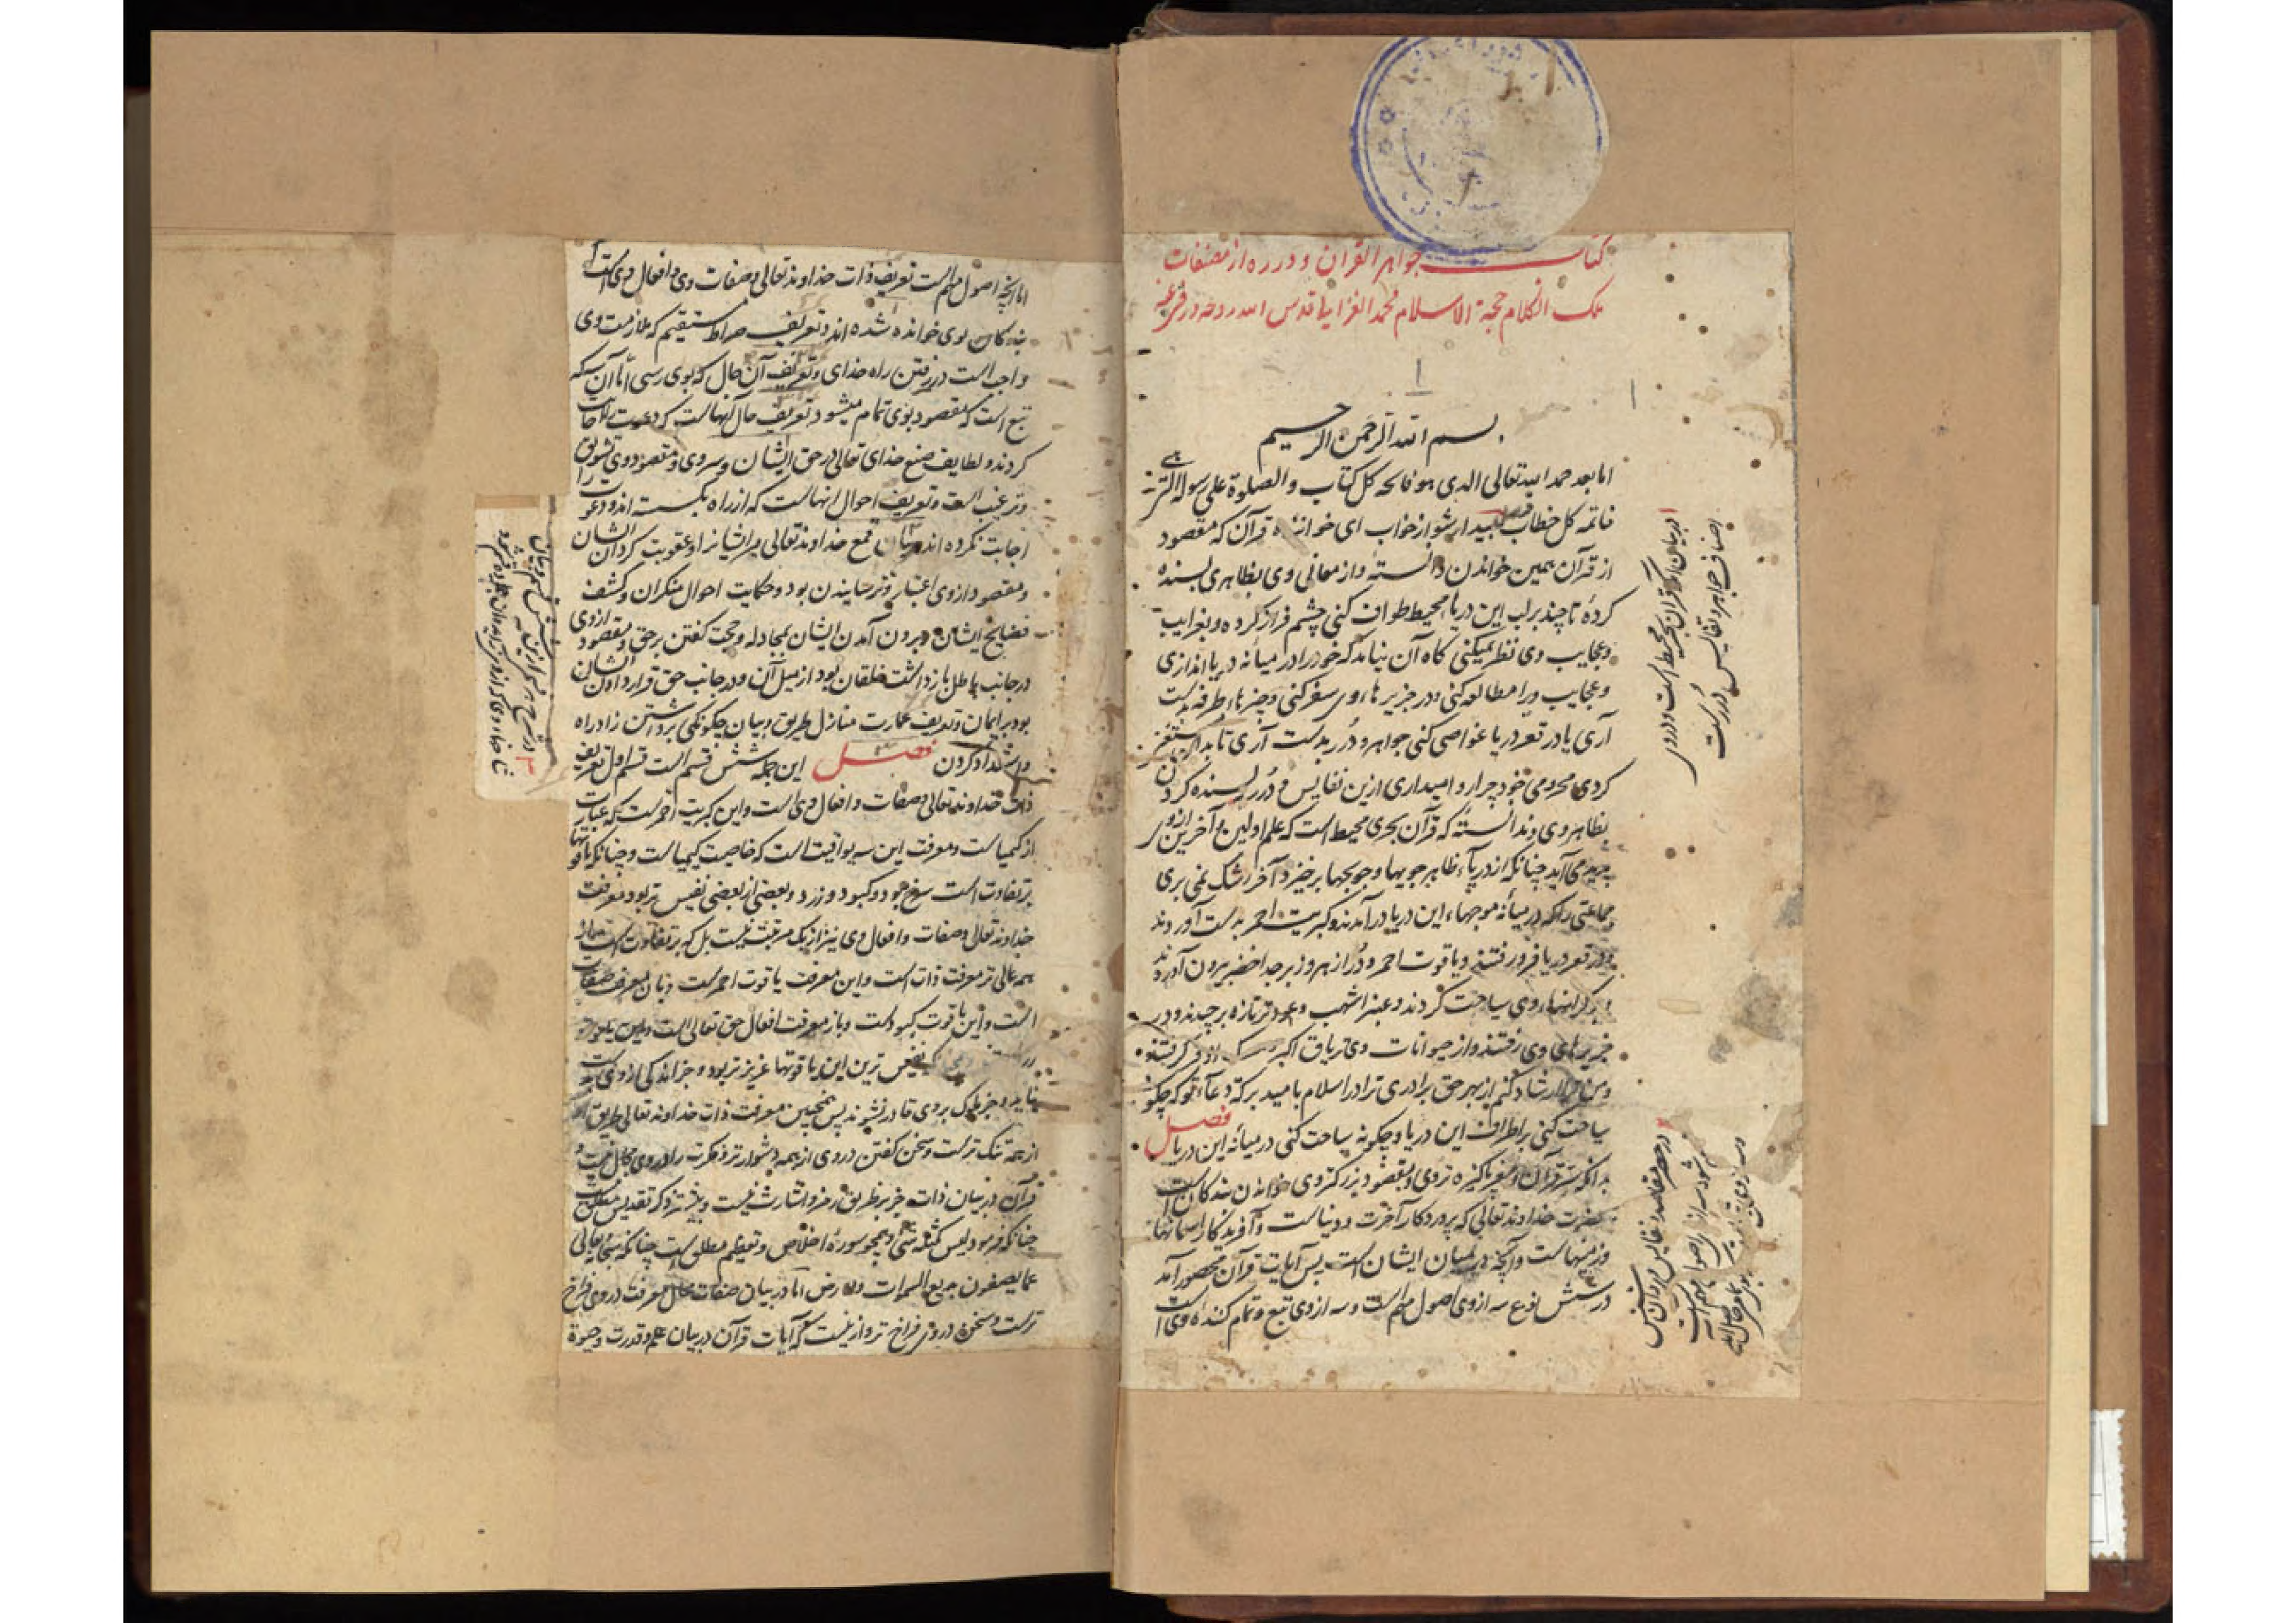 کتاب جواهر القرآن و درره از مصنفات
ملک الکلام حجة الاسلام محمد الغزالی قدس الله روحه
بسم الله الرحمن الرحیم
اما بعد حمد الله تعالی الذی هو فاتحه کل کتاب والصلوة علی رسوله التی هی
خاتمه کل خطاب بیدار شو از خواب ای خواننده قرآن که مقصود
از قرآن همین خواندن دانستهٔ و از معانی وی بظاهری بسنده
کردهٔ تا چند بر لب این دریا محیط طواف کنی چشم فراز کرده و بغرایب
و عجایب وی نظر نمیکنی گاه آن نیامد که خود را در میانه دریا اندازی
و عجایب ویرا مطالعه کنی و در جزیرهاء وی سفر کنی و چیزهاء طرفه بدست
آری یا در قعر دریا غواصی کنی جواهر و درر بدست آری تا بدان
کردی محرومی خود چرا روا میداری ازین نفایس و درر بسنده کردن
بظاهر وی ندانستهٔ که قرآن بحری محیط است که علم اولین و آخرین ازوی
می آید چنانکه از دریاء ظاهر جویها و جویجها برخیزد آخر رشک نمی بری
جماعتی را که در میانه موجهاء این دریا در آمدند و کبریت احمر بدست آوردند
و در قعر دریا فرو رفتند و یاقوت احمر و در ازهر و زبرجد اخضر بیرون آوردند
و بر کرانهاء وی سیاحت کردند و عنبر اشهب و عود تر تازه برچیدند و در
جزیرهای وی رفتند و از حیوانات وی تریاق اکبر گرفتند
و من ترا ارشاد کنم از بهر حق برادری ترا در اسلام بامید برکة دعاء تو که چگونه
سیاحت کنی بر اطراف این دریا و چگونه سباحت کنی در میانه این دریا فصل
بدانکه سر قرآن و مغز پاکیزه تر وی و مقصود بزرگتر وی خواندن بندگان است
بحضرت خداوند تعالی که پروردگار آخرت و دنیاست و آفریدگار آسمانها
و زمینهاست و آنچه در میان ایشان است پس آیات قرآن محصور آمد
در شش نوع سه از وی اصول مهم است و سه از وی تبع و تمام کننده وی است
در بیان آنکه قرآن بحر محیط است و در وی
اصناف جواهر و نفایس و درر است
در حصر مقاصد و نفایس قرآن در شش
اما آنچه اصول مهم است تعریف ذات خداوند تعالی و صفات وی و افعال وی است
بندگان بوی خوانده شده اند و تعریف صراط مستقیم که ملازمت وی
واجب است در رفتن راه خدای و تعریف آن حال که بوی رسی اما آن سه که
تبع است که مقصود بوی تمام میشود تعریف حال آنهاست که دعوت را اجابت
کردند و لطایف صنع خدای تعالی در حق ایشان و سر وی و مقصود وی تشویق
و ترغیب است و تعریف احوال آنهاست که از راه بگسسته اند و دعوت را
اجابت نکرده اند قمع خداوند تعالی مر ایشانرا و عقوبت کردن ایشان
و مقصود از وی اعتبار و ترسانیدن بود و حکایت احوال منکران و کشف
فضایح ایشان و بیرون آمدن ایشان بمجادله و حجت گفتن بر حق و مقصود ازوی
در جانب باطل باز داشت خلقان بود از میل آن و در جانب حق قرار دادن ایشان
بود بر ایمان و تعریف عمارت منازل طریق و بیان چگونگی برداشتن زاد راه
و استعداد کردن فصل این جمله شش قسم است قسم اول تعریف
ذات خداوند تعالی و صفات و افعال وی است و این کبریت احمر است که عبارت
از کیمیاست و معرفت این سه یواقیت است که خاصیت کیمیاست و چنانکه یاقوتها
بر تفاوت است سرخ بود و کبود و زرد و بعضی از بعضی نفیس تر بود معرفت
خداوند تعالی و صفات و افعال وی نیز از یک مرتبت نیست بل که بر تفاوت است
همه عالی تر معرفت ذات است و این معرفت یاقوت احمر است و باز معرفت صفات
است و این یاقوت کبود است و باز معرفت افعال حق تعالی است و این یاقوت
نفیس ترین این یاقوتها عزیزتر بود و جز اندکی از وی بدست
نیاید و جز ملوک بر وی قادر نشوند پس همچنین معرفت ذات خداوند تعالی طریق
از همه تنگ ترست و سخن گفتن در وی از همه دشوارتر و فکرت را در وی مجال نیست و
قرآن در بیان ذات جز بر طریق رمز و اشارت نیست و بیشتر ذکر تقدیس مطلق است
چنانکه فرمود لیس کمثله شی و همچو سوره اخلاص و تعظیم مطلق است چنانکه سبحانه و تعالی
عما یصفون بدیع السموات والارض اما در بیان صفات مجال معرفت در وی فراخ
ترست و سخن در وی فراخ تر و از نیست که آیات قرآن در بیان علم و قدرت و حیوة